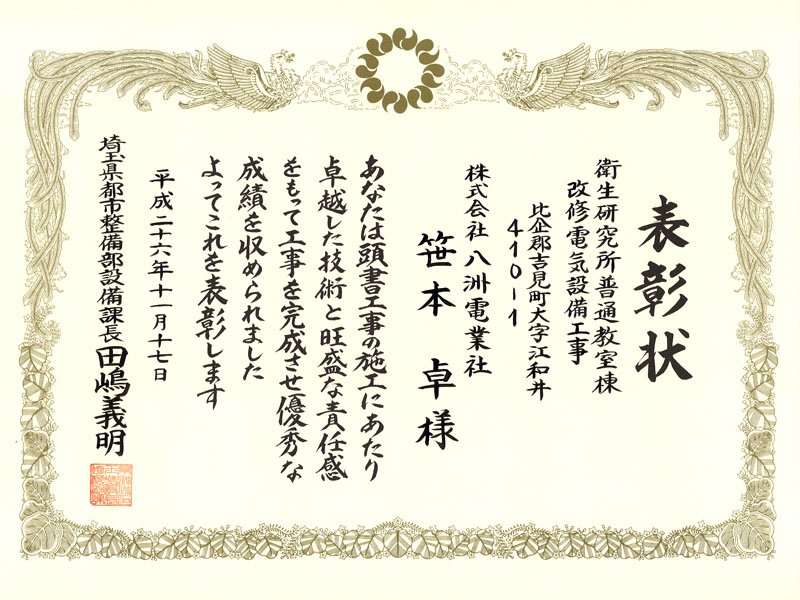 表彰状
衛生研究所普通教室棟
改修電気設備工事
比企郡吉見町大字江和井
410-1
株式会社八洲電業社
笹本 卓様
あなたは頭書工事の施工にあたり
卓越した技術と旺盛な責任感
をもって工事を完成させ優秀な
成績を収められました
よってこれを表彰します
平成二十六年十一月十七日
埼玉県都市整備部設備課長 田嶋義明